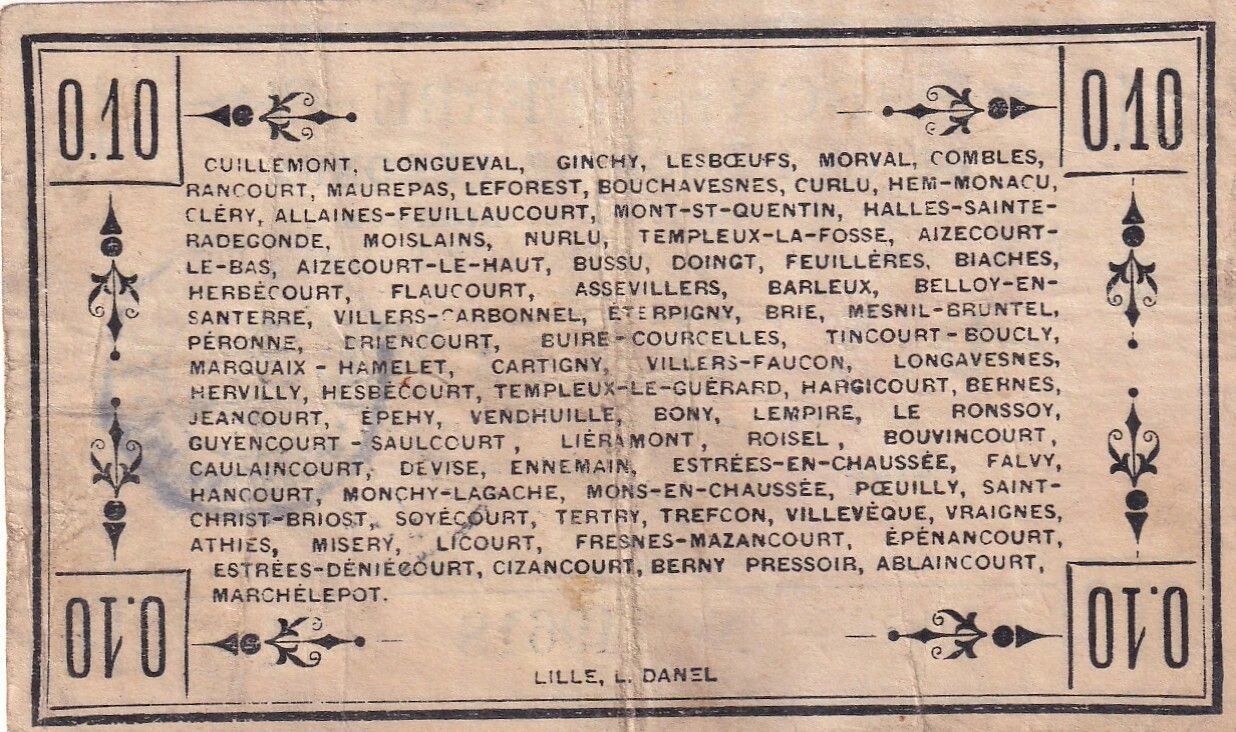 0.10
0.10
GUILLEMONT, LONGUEVAL, GINCHY, LESBŒUFS, MORVAL, COMBLES,
RANCOURT, MAUREPAS, LEFOREST, BOUCHAVESNES, CURLU, HEM-MONACU,
CLÉRY, ALLAINES-FEUILLAUCOURT, MONT-ST-QUENTIN, HALLES-SAINTE-
RADEGONDE, MOISLAINS, NURLU, TEMPLEUX-LA-FOSSE, AIZECOURT-
LE-BAS, AIZECOURT-LE-HAUT, BUSSU, DOINGT, FEUILLÈRES, BIACHES,
HERBÉCOURT, FLAUCOURT, ASSEVILLERS, BARLEUX, BELLOY-EN-
SANTERRE, VILLERS-CARBONNEL, ÉTERPIGNY, BRIE, MESNIL-BRUNTEL,
PÉRONNE, DRIENCOURT, BUIRE-COURCELLES, TINCOURT-BOUCLY,
MARQUAIX - HAMELET, CARTIGNY, VILLERS-FAUCON, LONGAVESNES,
HERVILLY, HESBÉCOURT, TEMPLEUX-LE-GUÉRARD, HARGICOURT, BERNES,
JEANCOURT, ÉPEHY, VENDHUILLE, BONY, LEMPIRE, LE RONSSOY,
GUYENCOURT - SAULCOURT, LIÉRAMONT, ROISEL, BOUVINCOURT,
CAULAINCOURT, DEVISE, ENNEMAIN, ESTRÉES-EN-CHAUSSÉE, FALVY,
HANCOURT, MONCHY-LAGACHE, MONS-EN-CHAUSSÉE, PŒUILLY, SAINT-
CHRIST-BRIOST, SOYÉCOURT, TERTRY, TREFCON, VILLEVÊQUE, VRAIGNES,
ATHIES, MISERY, LICOURT, FRESNES-MAZANCOURT, ÉPÉNANCOURT,
ESTRÉES-DÉNIÉCOURT, CIZANCOURT, BERNY PRESSOIR, ABLAINCOURT,
MARCHÉLEPOT.
0.10
0.10
LILLE, L. DANEL